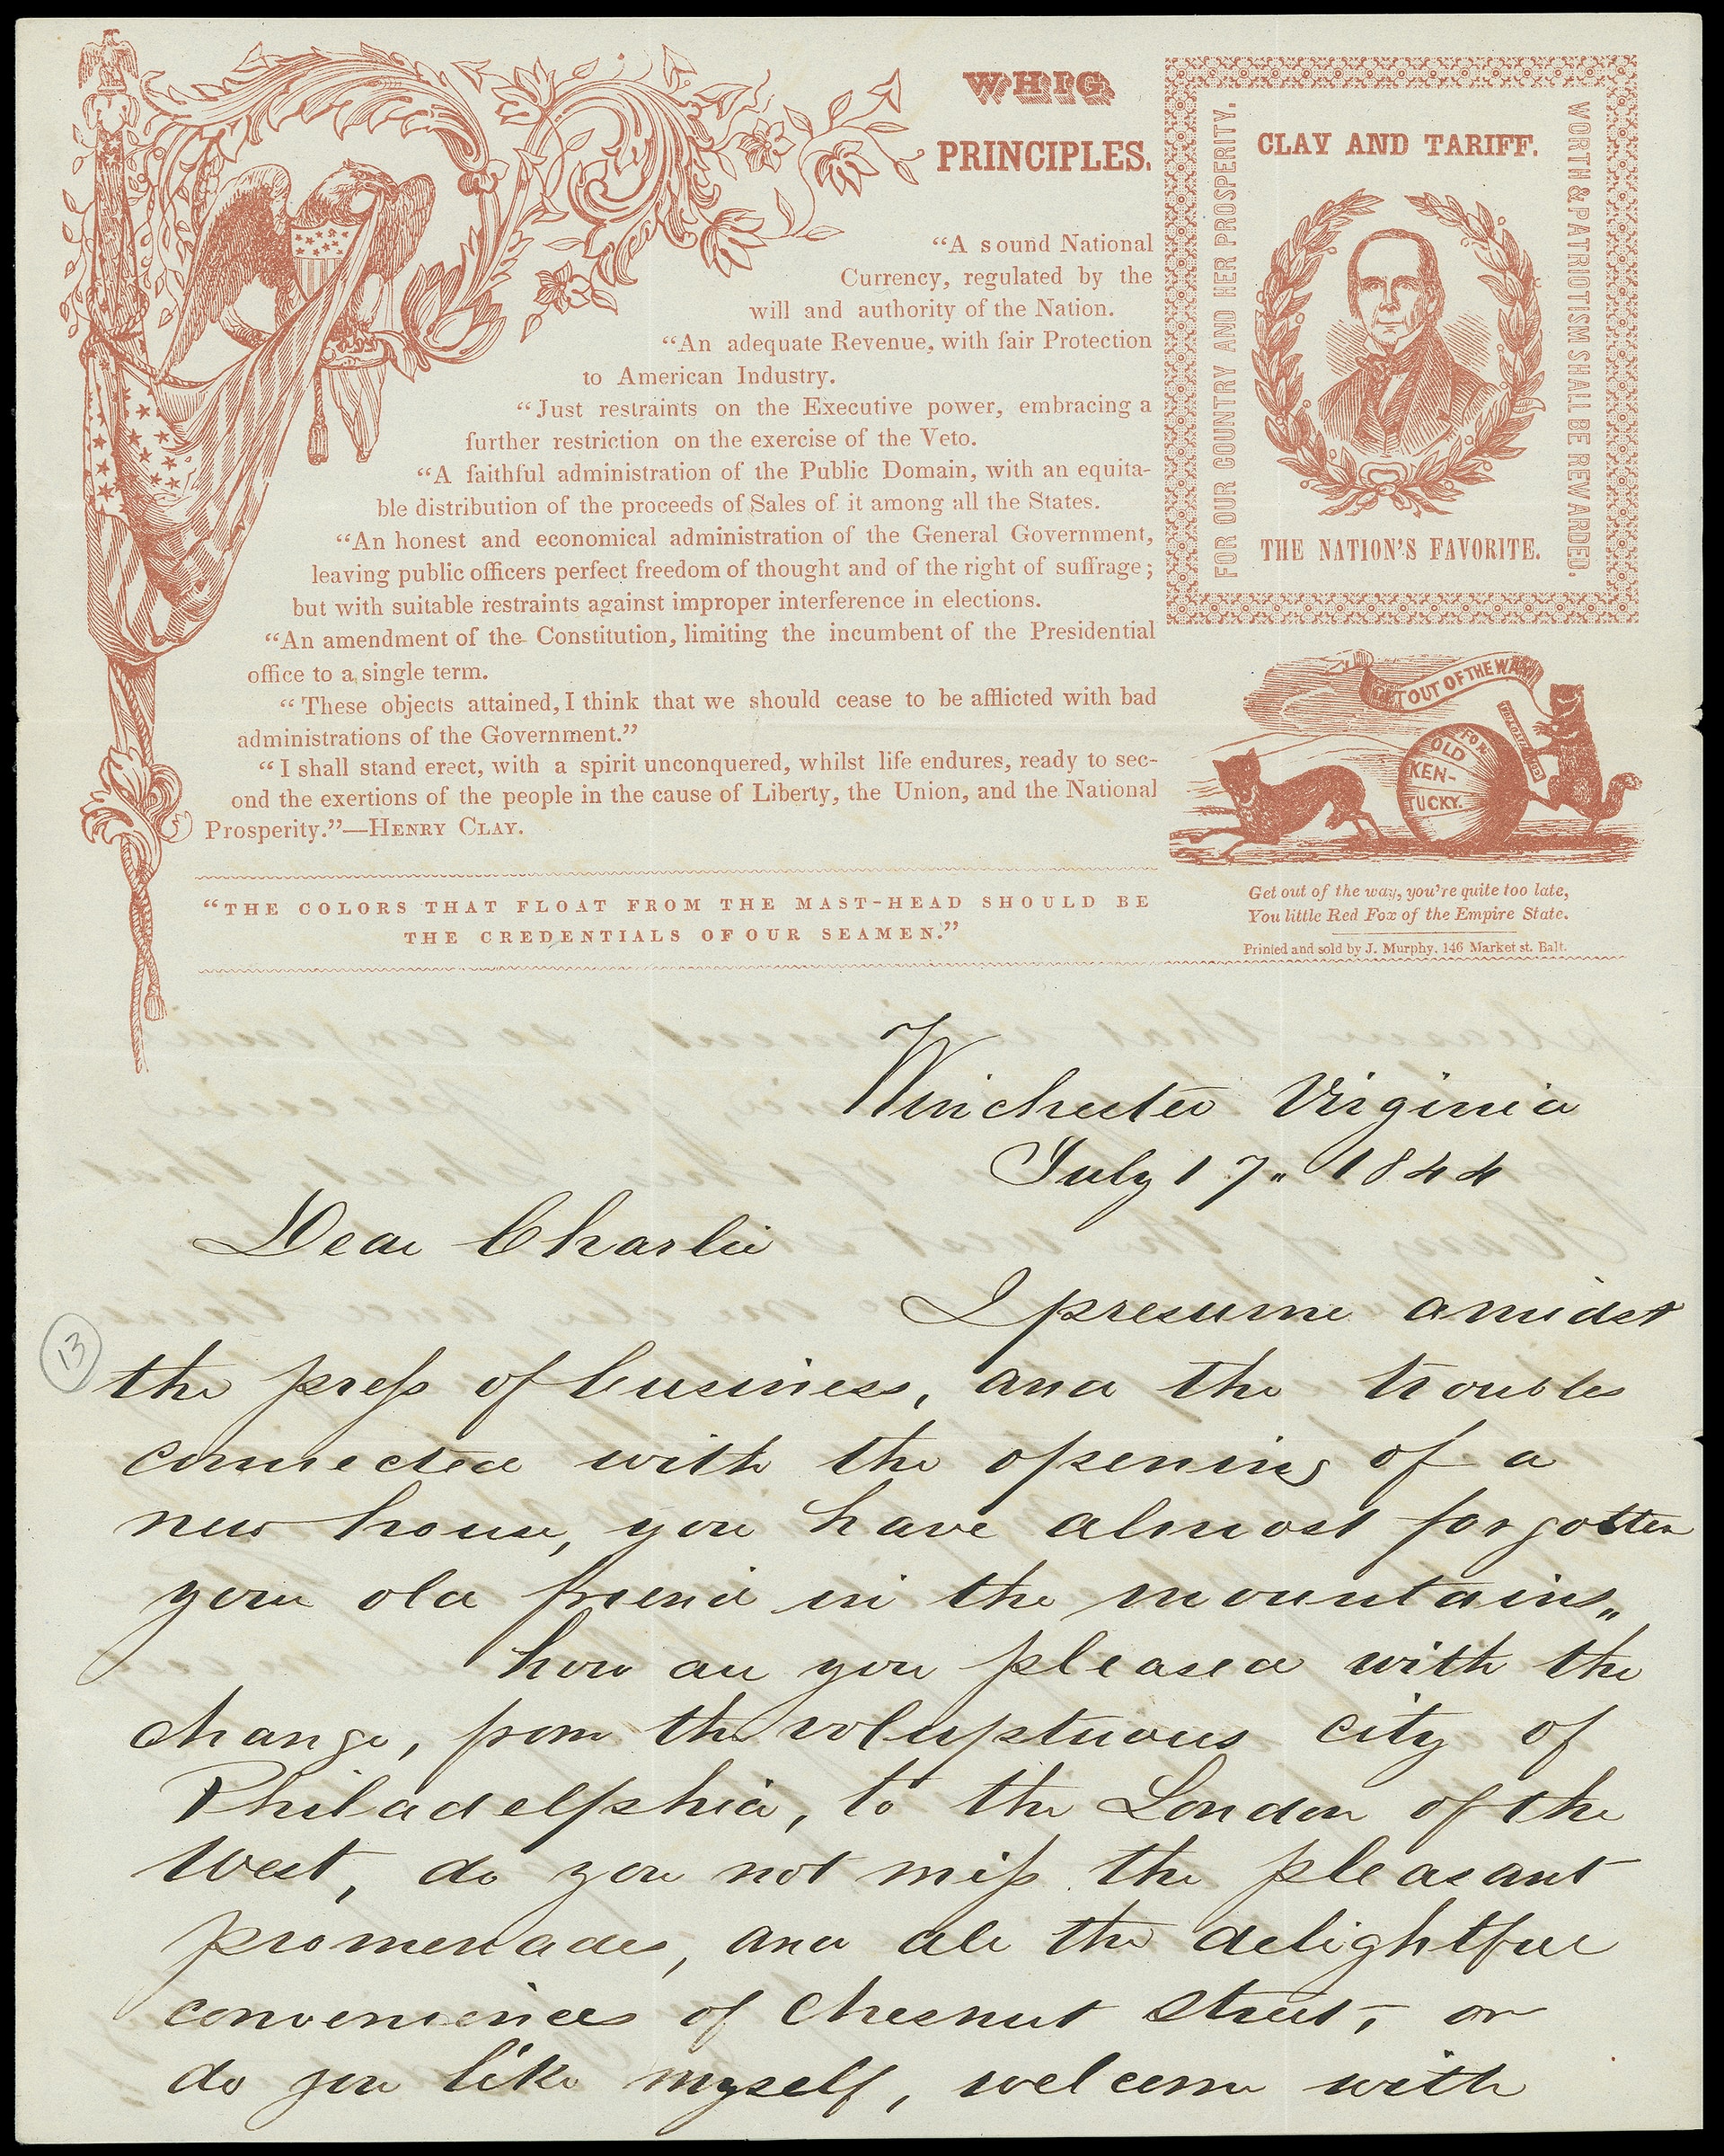 WHIG
PRINCIPLES.
“A sound National
Currency, regulated by the
will and authority of the Nation.
“An adequate Revenue, with fair Protection
to American Industry.
“Just restraints on the Executive power, embracing a
further restriction on the exercise of the Veto.
“A faithful administration of the Public Domain, with an equita-
ble distribution of the proceeds of Sales of it among all the States.
“An honest and economical administration of the General Government,
leaving public officers perfect freedom of thought and of the right of suffrage;
but with suitable restraints against improper interference in elections.
“An amendment of the Constitution, limiting the incumbent of the Presidential
office to a single term.
“These objects attained, I think that we should cease to be afflicted with bad
administrations of the Government.”
“I shall stand erect, with a spirit unconquered, whilst life endures, ready to sec-
ond the exertions of the people in the cause of Liberty, the Union, and the National
Prosperity.”—HENRY CLAY.
“THE COLORS THAT FLOAT FROM THE MAST-HEAD SHOULD BE
THE CREDENTIALS OF OUR SEAMEN.”
FOR OUR COUNTRY AND HER PROSPERITY.
CLAY AND TARIFF.
WORTH & PATRIOTISM SHALL BE REWARDED.
THE NATION'S FAVORITE.
GET OUT OF THE WAY
FOR
OLD
KEN-
TUCKY.
Get out of the way, you're quite too late,
You little Red Fox of the Empire State.
Printed and sold by J. Murphy, 146 Market st. Balt.
Winchester Virginia
July 17" 1844
Dear Charlie
I presume amidst
13
the press of business, and the troubles
connected with the opening of a
new house, you have almost forgotten
your old friend in the mountains"
how are you pleased with the
change, from the voluptuous city of
Philadelphia, to the London of the
West, do you not miss the pleasant
promenades, and all the delightful
conveniences of Chesnut Street, or
do you like myself, welcome with